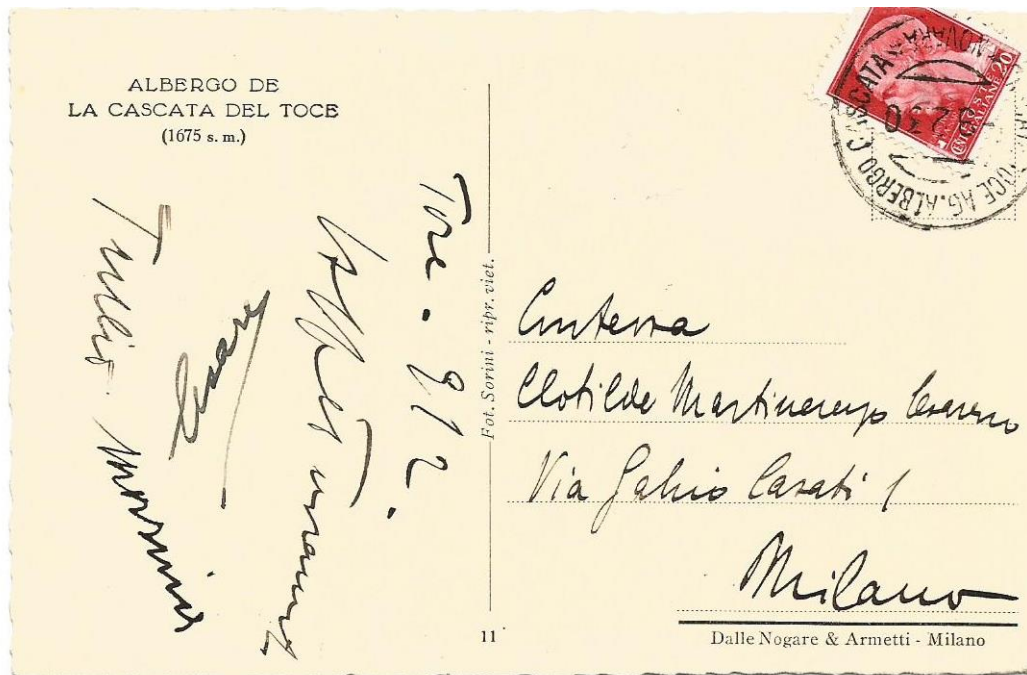 ALBERGO DE
LA CASCATA DEL TOCE
(1675 s. m.)
Toce . 9 / 2 .
Cesare
Tullio
Fot. Sorini - ripr. viet.
11
CENT. 20
ITALIANE
AG. ALBERGO CASCATA
NOVARA
-9 2 30
Contessa
Clotilde Martinengo Cesaresco
Via Gabrio Casati 1
Milano
Dalle Nogare & Armetti - Milano